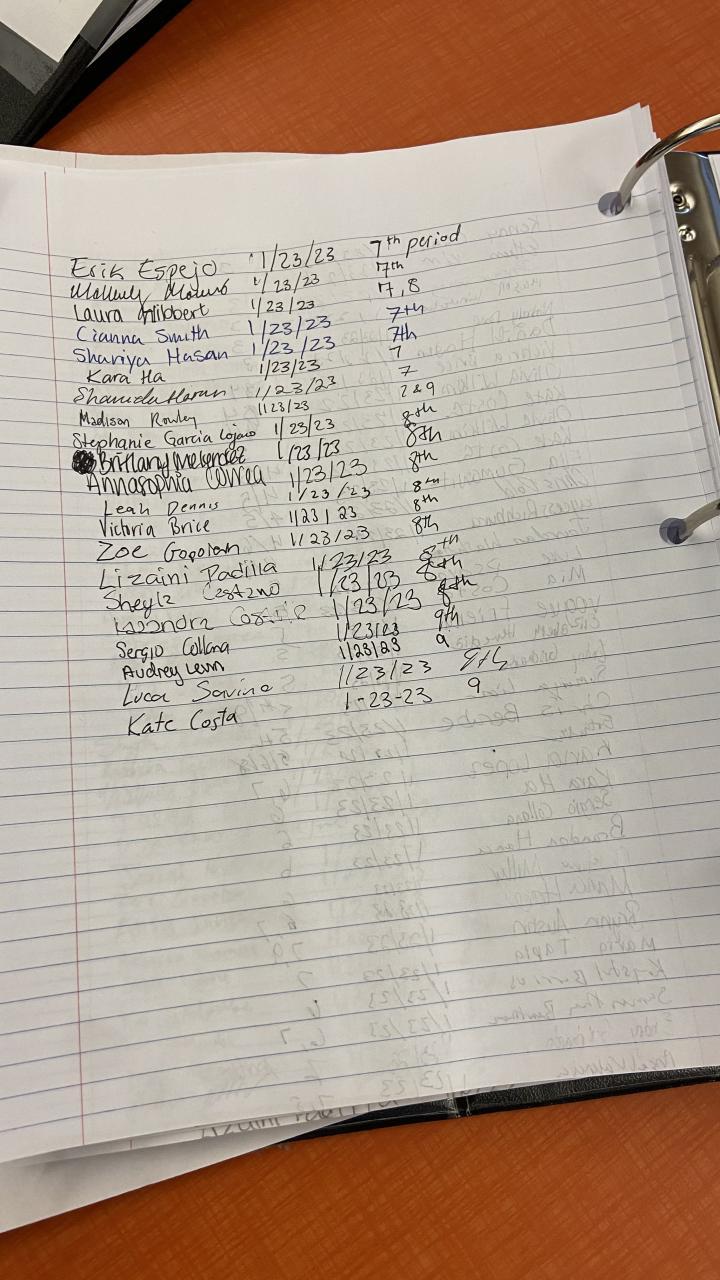 Erik Espejo 1/23/23 7th period
1/23/23 7th
Laura Hibbert 1/23/23 7,8
Cianna Smith 1/23/23 7th
Shariya Hasan 1/23/23 7th
Kara Ha 1/23/23 7
1/23/23 7
Madison Rowley 1/23/23 & 9
Stephanie Garcia Lojano 1/23/23 8th
Brittany Melendez 1/23/23 8th
Annasophia Correa 1/23/23 8th
Leah Dennis 1/23/23 8th
Victoria Brice 1/23/23 8th
Zoe 1/23/23 8th
Lizaini Padilla 1/23/23 8th
Sheyla Castano 1/23/23 8th
Kasandra 1/23/23 8th
Sergio Collana 1/23/23 9th
Audrey 1/23/23 9
Luca Savino 1/23/23 9th
Kate Costa 1-23-23 9